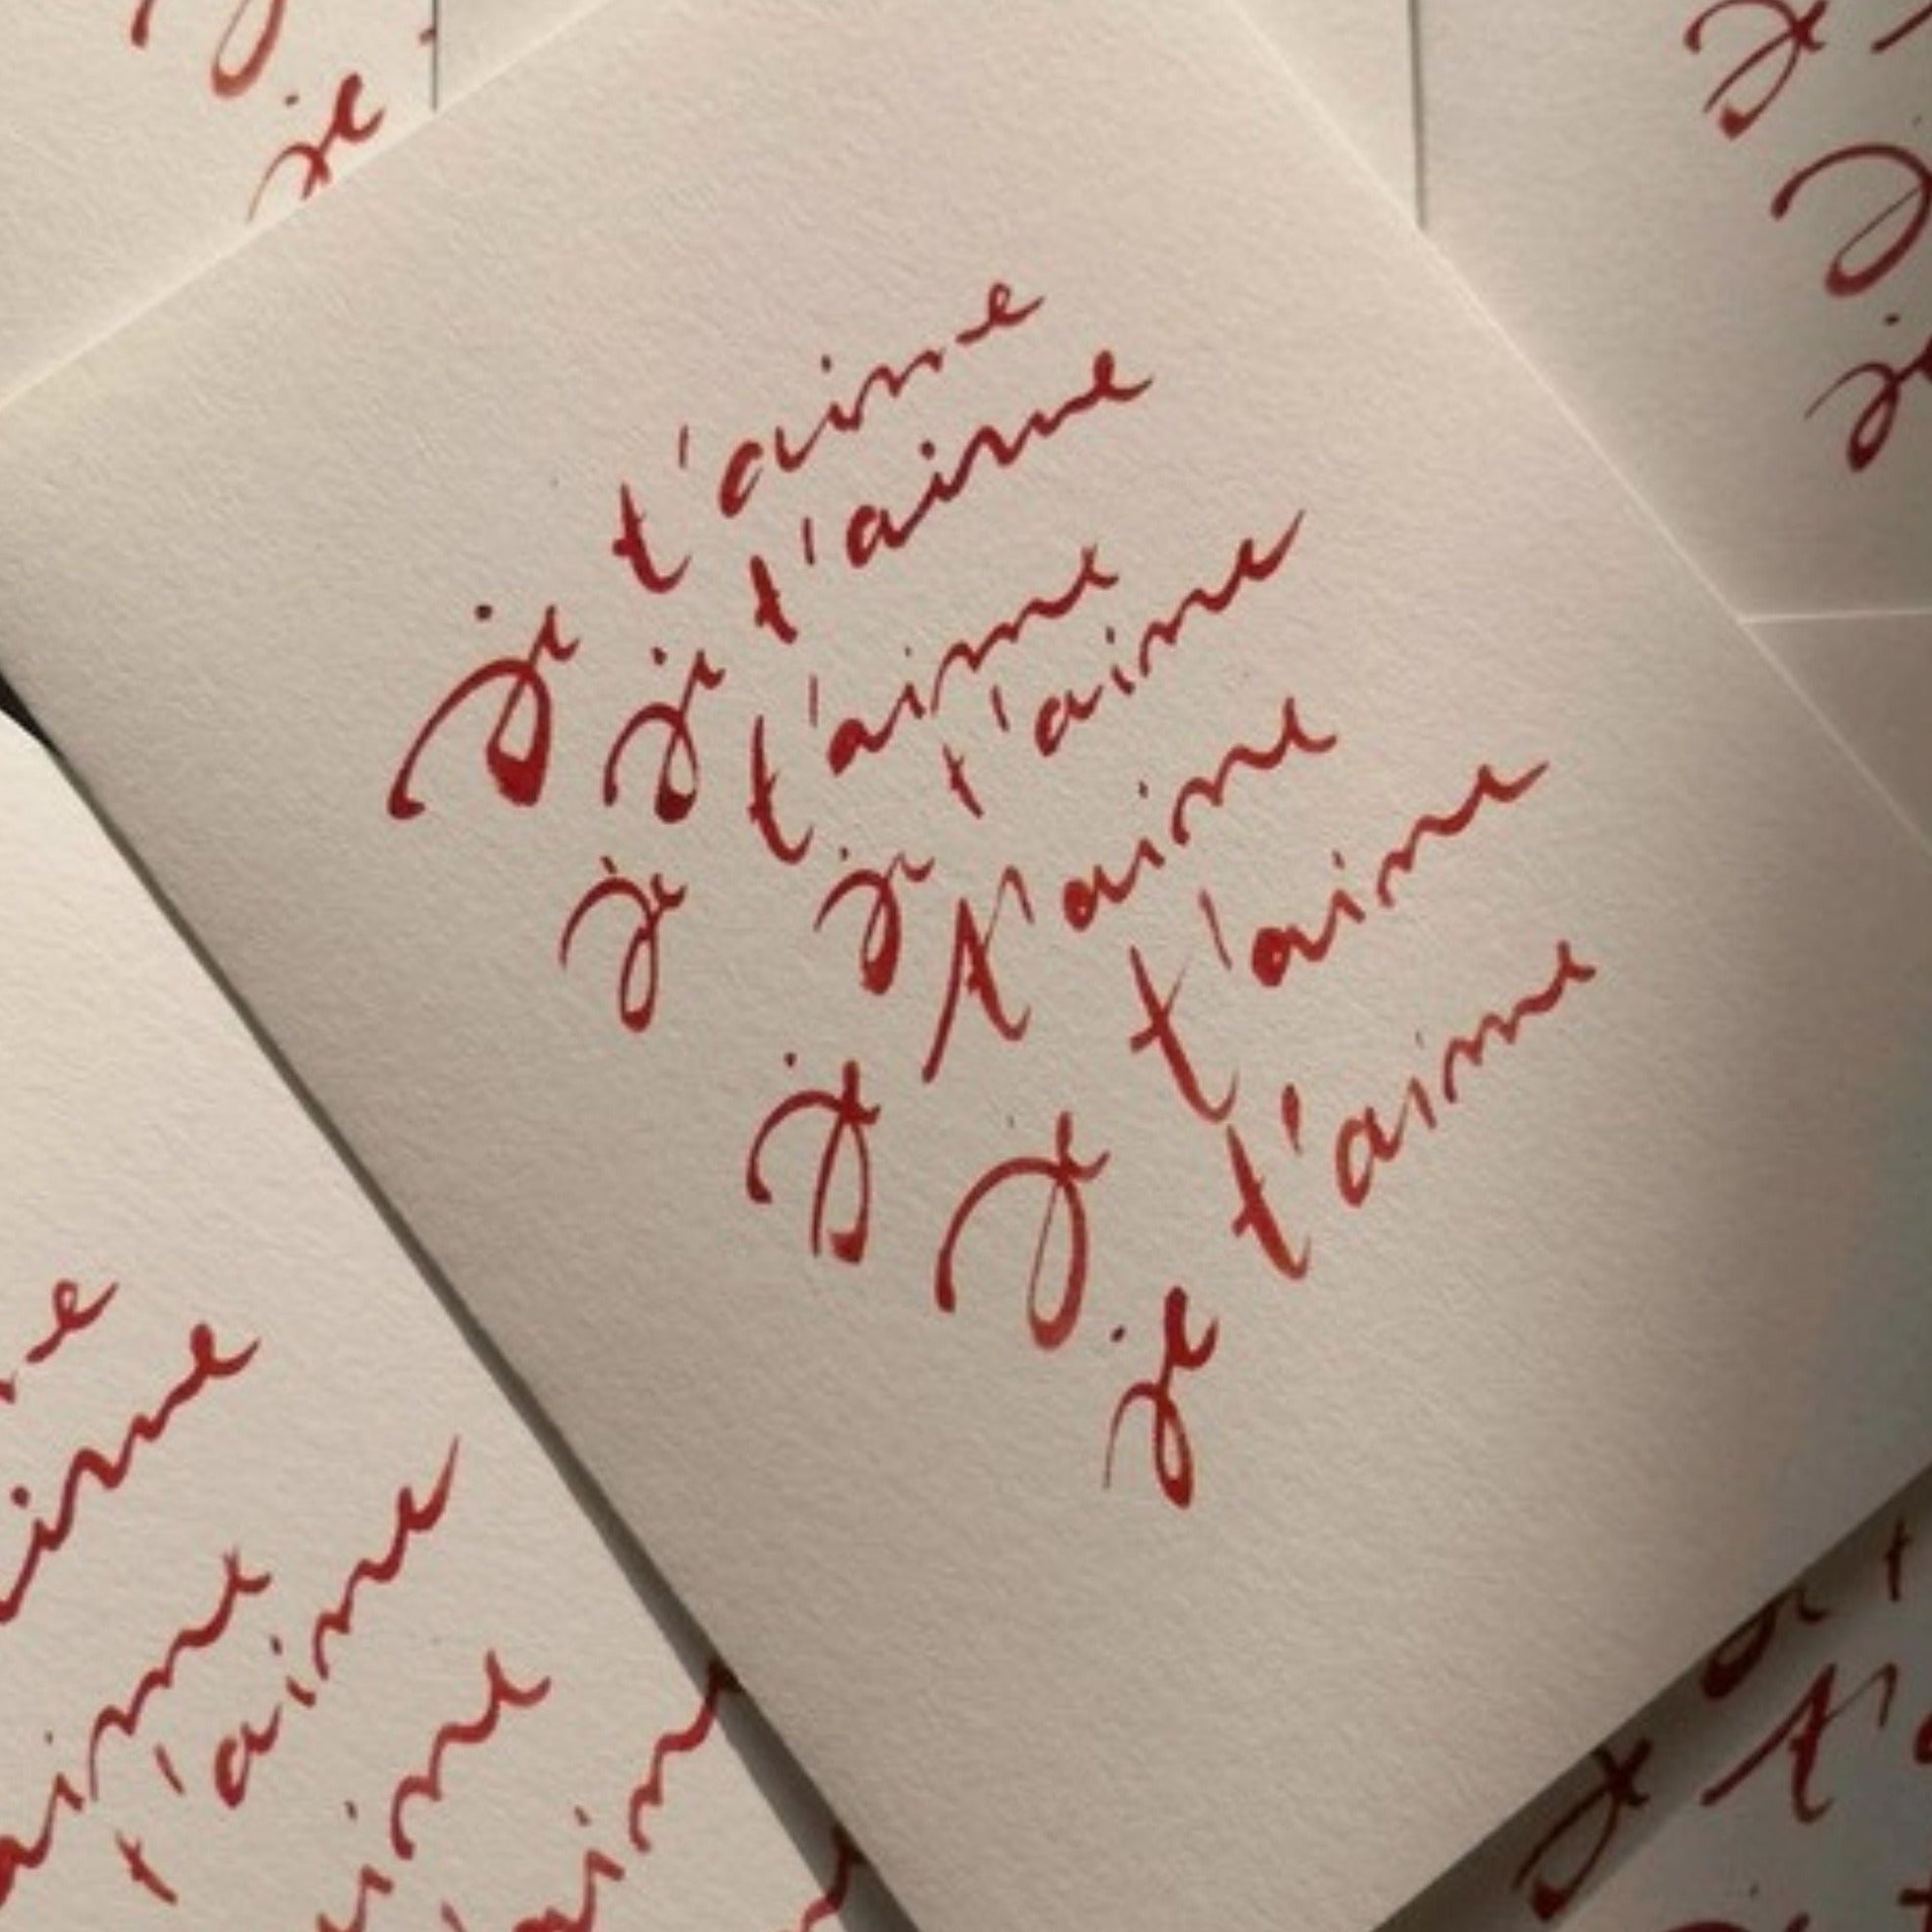 je t'aime
je t'aime
je t'aime
je t'aime
je t'aime
je t'aime
je t'aime
je
t'aime